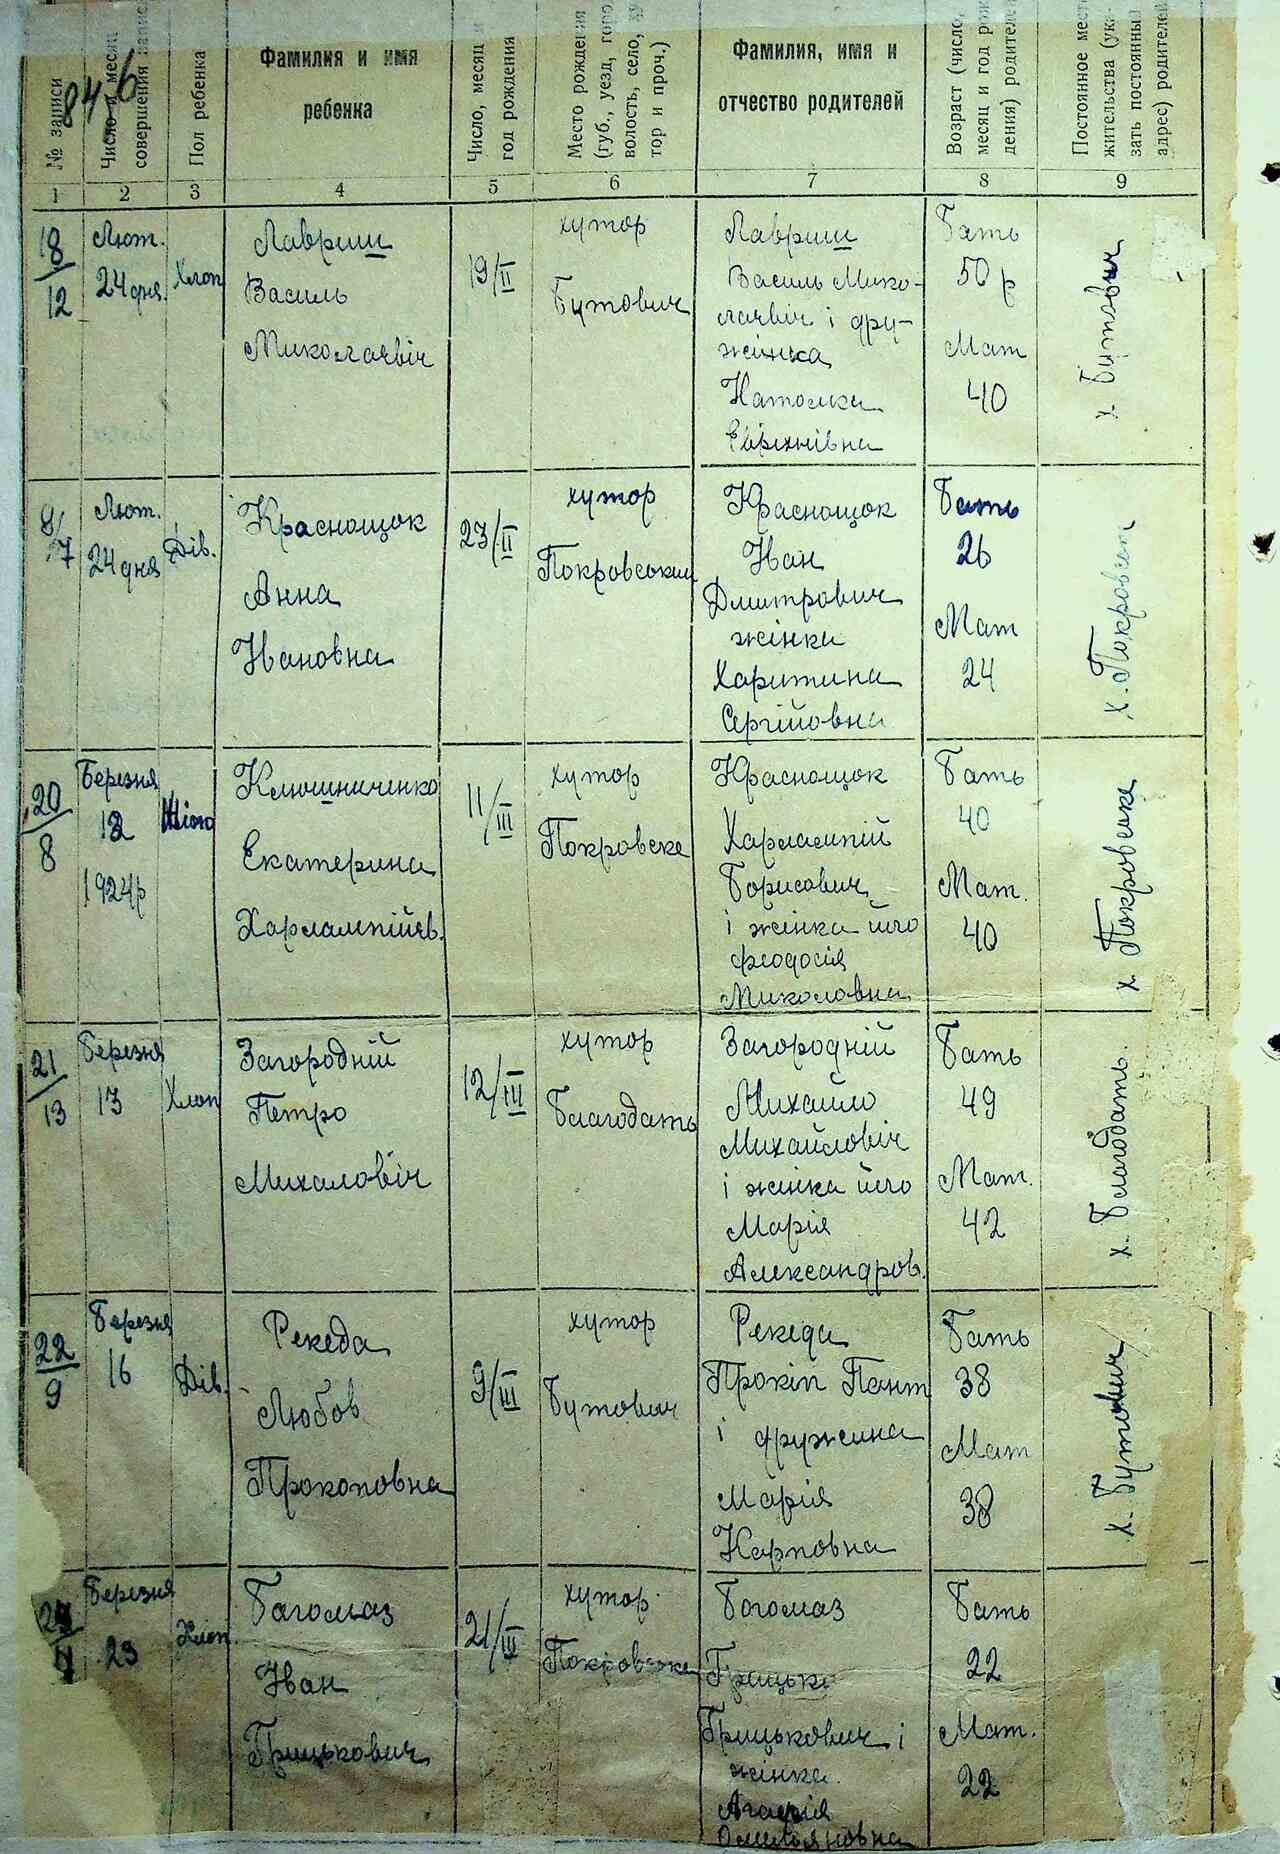 № записи
84 б
Число и месяц
совершения запис.
Пол ребенка
Фамилия и имя
ребенка
Число, месяц и
год рождения
Место рождения
(губ., уезд, горо
волость, село, ху
тор и проч.)
Фамилия, имя и
отчество родителей
Возраст (число,
месяц и год рож
дения) родителе
Постоянное мест
жительства (ука-
зать постоянны
адрес) родителей
1 2 3 4 5 6 7 8 9
18/12
Лют.
24 дня
Хлоп
Лавриш
Василь
Миколаєвіч
19/II
хутор
Бутович
Лавриш
Василь Мико-
лаєвіч і дру-
жінка
Наталка
Бать
50 р
Мат
40
х Бутович
8/7
Лют.
24 дня
Дів.
Краснощок
Анна
Ивановна
23/II
хутор
Покровський
Краснощок
Иван
Дмитрович
жінка
Харитина
Сергійовна
Бать
26
Мат
24
х. Покровсеп
20/8
Березня
12
1924р
Клюшниченко
Екатерина
Харлампійєв.
11/III
хутор
Покровске
Краснощок
Харлампій
Борисович
і жінка його
феодосія
Миколовна
Бать
40
Мат.
40
х Покровське
21/13
Березня
13
Хлоп
Загородній
Петро
Михаловіч
12/III
хутор
Благодать
Загородній
Михайло
Михайловіч
і жінка його
Марія
Александров.
Бать
49
Мат.
42
х. Благодать.
22/9
Березня
16
Дів.
Рекеда
Любов
Прокоповна
9/III
хутор
Бутович
Рекеда
Прокіп Пант
і дружина
Марія
Карповна
Бать
38
Мат
38
х. Бутович
Березня
23
Хлоп.
Багомаз
Иван
Грицькович
21/III
хутор
Покровське
Богомаз
Грицько
Грицькович і
жінка
Агафія
Омильяновна
Бать
22
Мат.
22